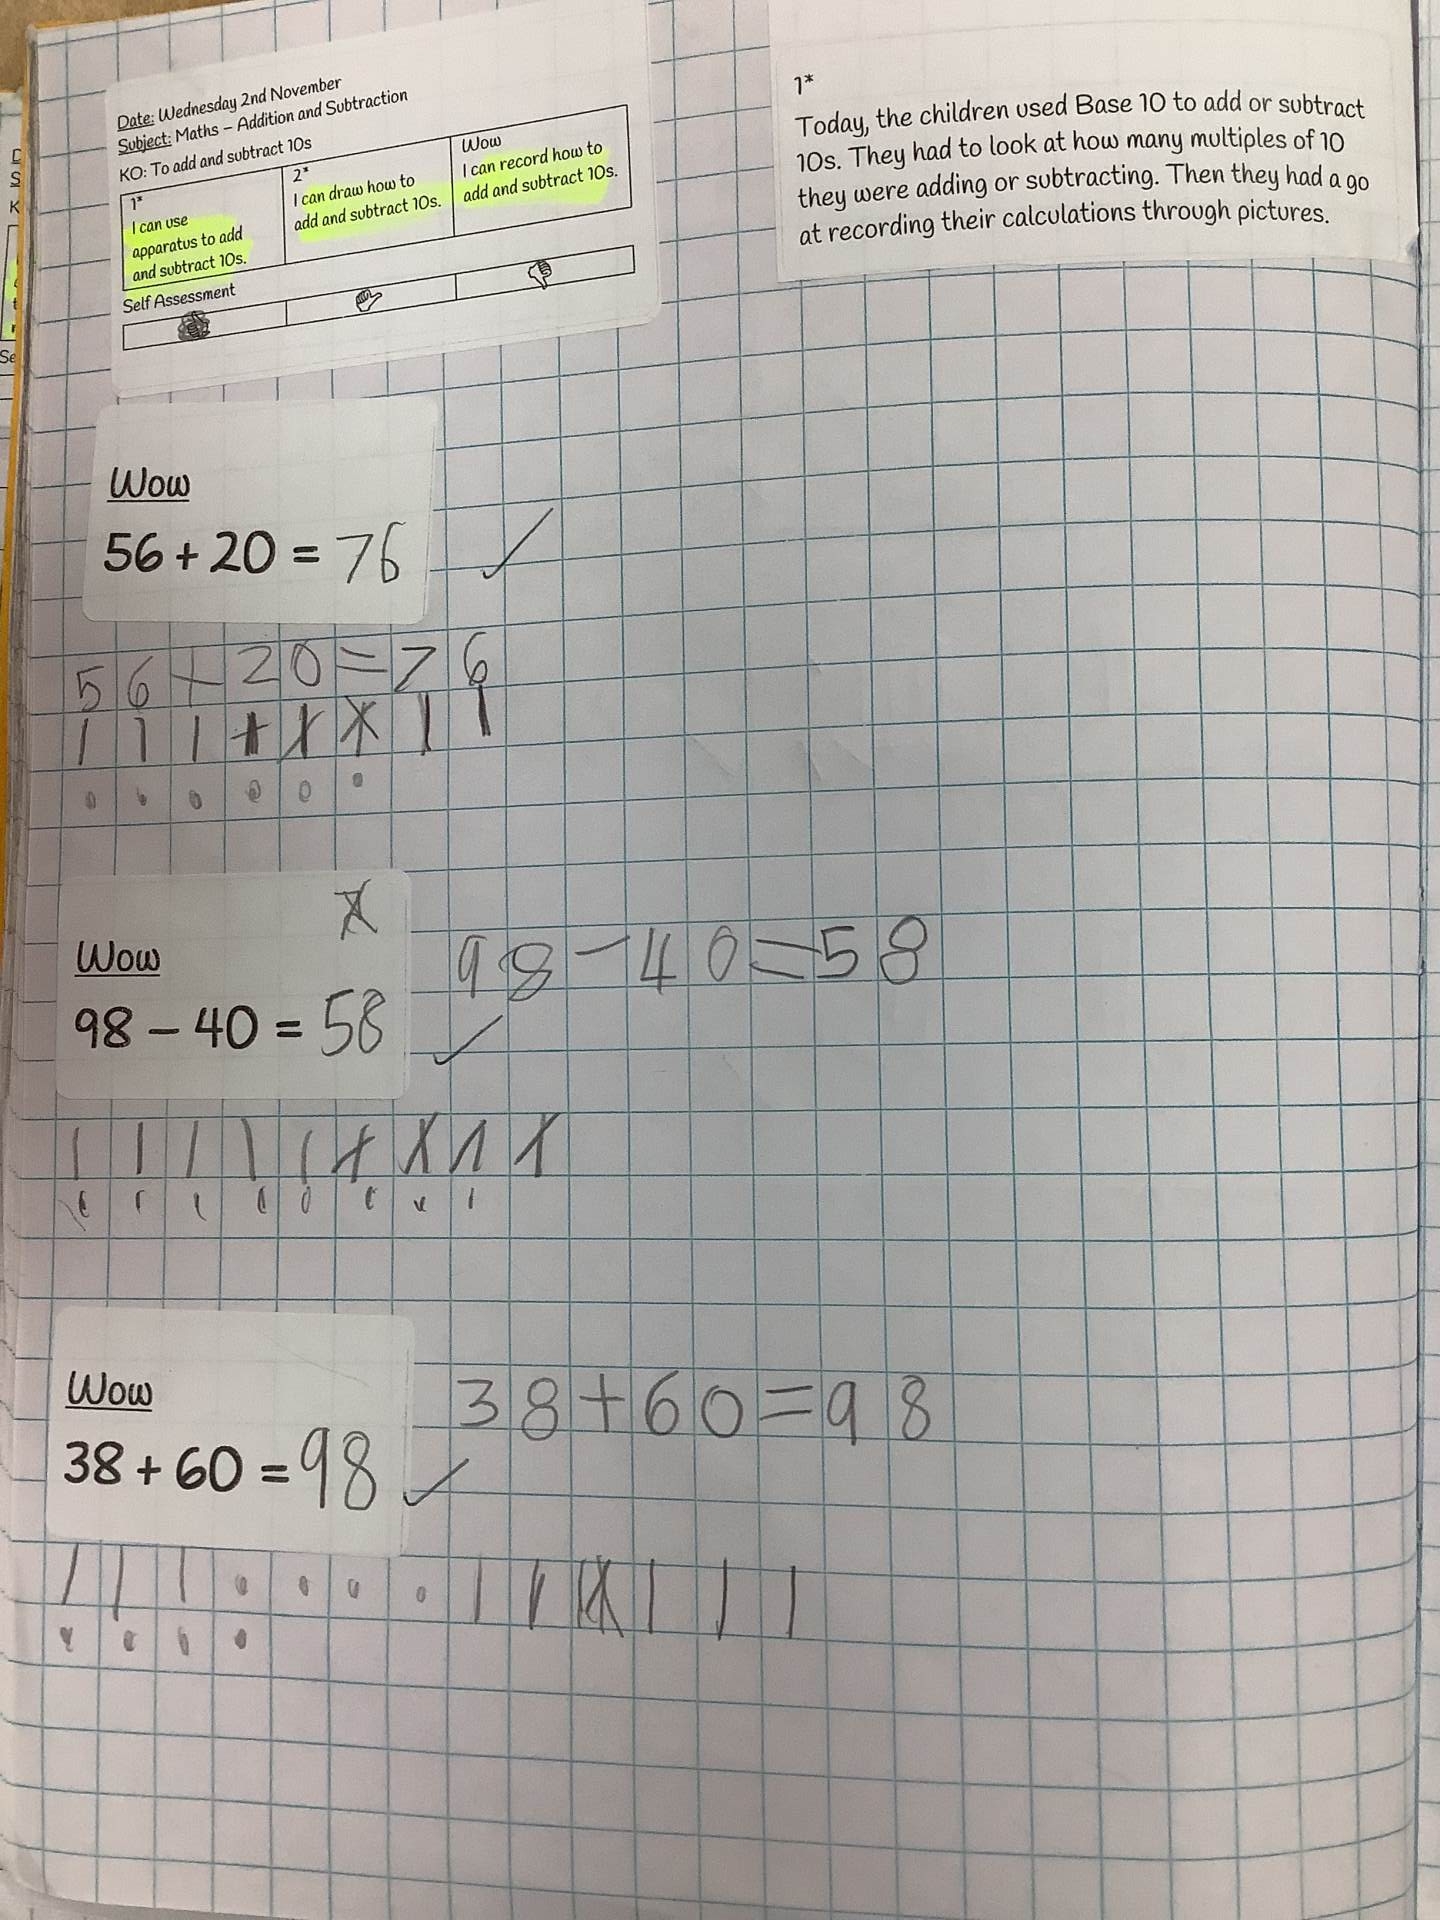 Date: Wednesday 2nd November
Subject: Maths – Addition and Subtraction
KO: To add and subtract 10s
1*
I can use
apparatus to add
and subtract 10s.
2*
I can draw how to
add and subtract 10s.
Wow
I can record how to
add and subtract 10s.
Self Assessment
1*
Today, the children used Base 10 to add or subtract
10s. They had to look at how many multiples of 10
they were adding or subtracting. Then they had a go
at recording their calculations through pictures.
Wow
56 + 20 = 76
56+20=76
Wow
98 – 40 = 58
98-40=58
Wow
38 + 60 = 98
38+60=98